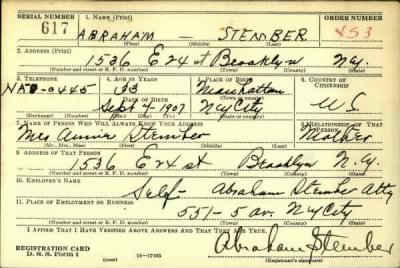 SERIAL NUMBER 1. NAME (Print) ORDER NUMBER
617 ABRAHAM — STEMBER 453
(First) (Middle) (Last)
2. ADDRESS (Print)
1536 E 24 st Brooklyn N.Y.
(Number and street or R. F. D. number) (Town) (County) (State)
3. TELEPHONE 4. AGE IN YEARS 5. PLACE OF BIRTH 6. COUNTRY OF CITIZENSHIP
33 Manhattan
DATE OF BIRTH (Town or county)
Sept 4 1907 N Y City U S
(Exchange) (Number) (Mo.) (Day) (Yr.) (State or country)
7. NAME OF PERSON WHO WILL ALWAYS KNOW YOUR ADDRESS 8. RELATIONSHIP OF THAT PERSON
Mrs Annie Stember Mother
(Mr., Mrs., Miss) (First) (Middle) (Last)
9. ADDRESS OF THAT PERSON
1536 E 24 st Brooklyn N.Y.
(Number and street or R. F. D. number) (Town) (County) (State)
10. EMPLOYER'S NAME
Self - Abraham Stember Atty
11. PLACE OF EMPLOYMENT OR BUSINESS
551 - 5 av. N Y City
(Number and street or R. F. D. number) (Town) (County) (State)
I AFFIRM THAT I HAVE VERIFIED ABOVE ANSWERS AND THAT THEY ARE TRUE.
Abraham Stember
REGISTRATION CARD
D. S. S. Form 1 (over) 16—17105 (Registrant's signature)